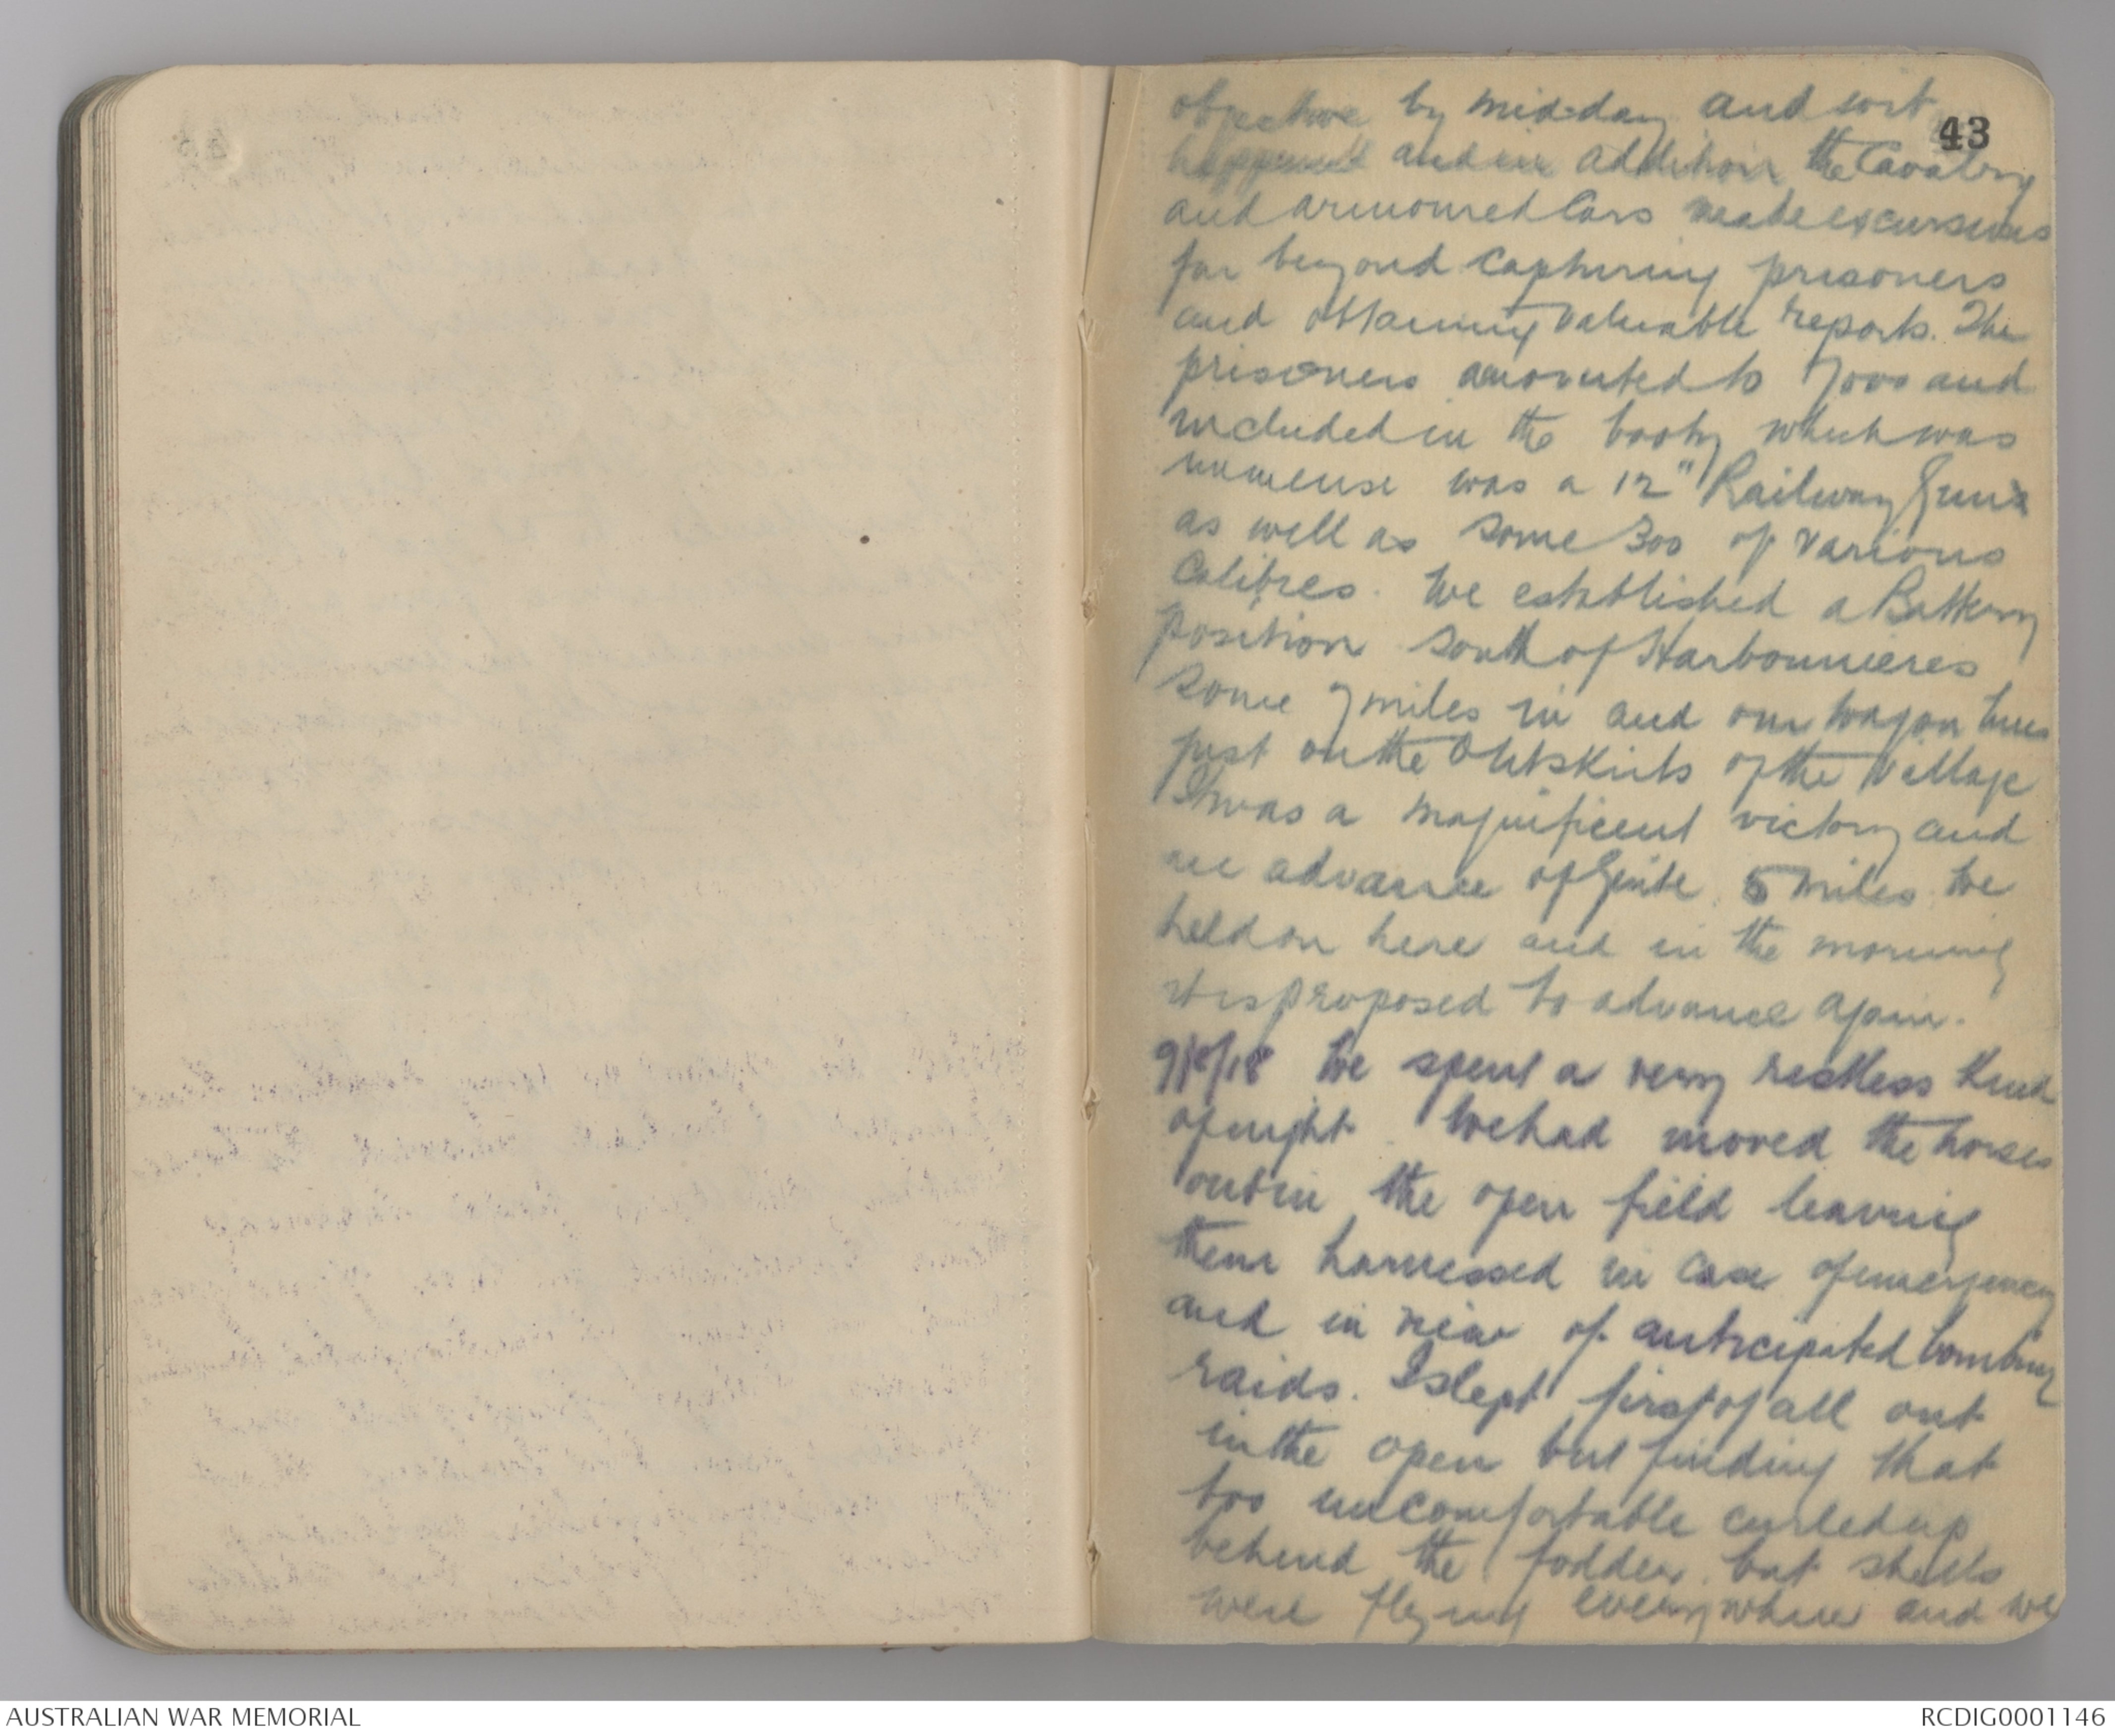 43
objective by mid-day and so it
happened and in addition the Cavalry
and armoured Cars made excursions
far beyond capturing prisoners
and obtaining valuable reports. The
prisoners amounted to 7000 and
included in the booty which was
immense was a 12" Railway Gun
as well as some 300 of various
Calibres. We established a Battery
position South of Harbonnieres
some 7 miles in and our wagon lines
just on the Outskirts of the Village
It was a magnificent victory and
an advance of quite 5 miles. We
held on here and in the morning
it is proposed to advance again.
9/8/18 We spent a very restless kind
of night. We had moved the horses
out in the open field leaving
them harnessed in case of emergency
and in view of anticipated bombing
raids. I slept first of all out
in the open but finding that
too uncomfortable curled up
behind the fodder, but shells
were flying everywhere and we
AUSTRALIAN WAR MEMORIAL
RCDIG0001146